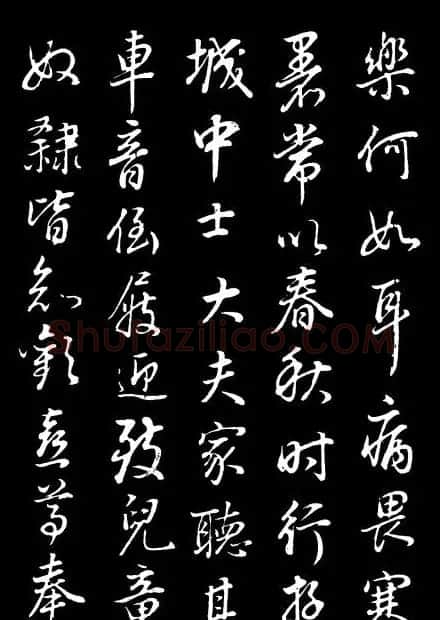 樂何如耳病畏寒
暑常以春秋时行
城中士大夫家聽其
車音倒屐迎致兒童
奴隸皆知歡喜尊奉
Shufaziliao.COM